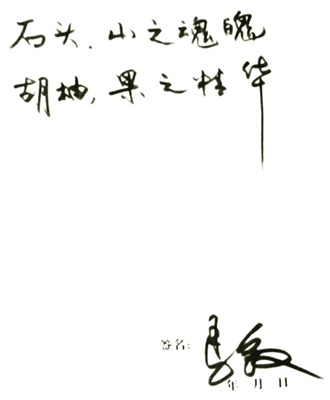 石头，山之魂魄
胡柚，果之精华
签名：
年 月 日